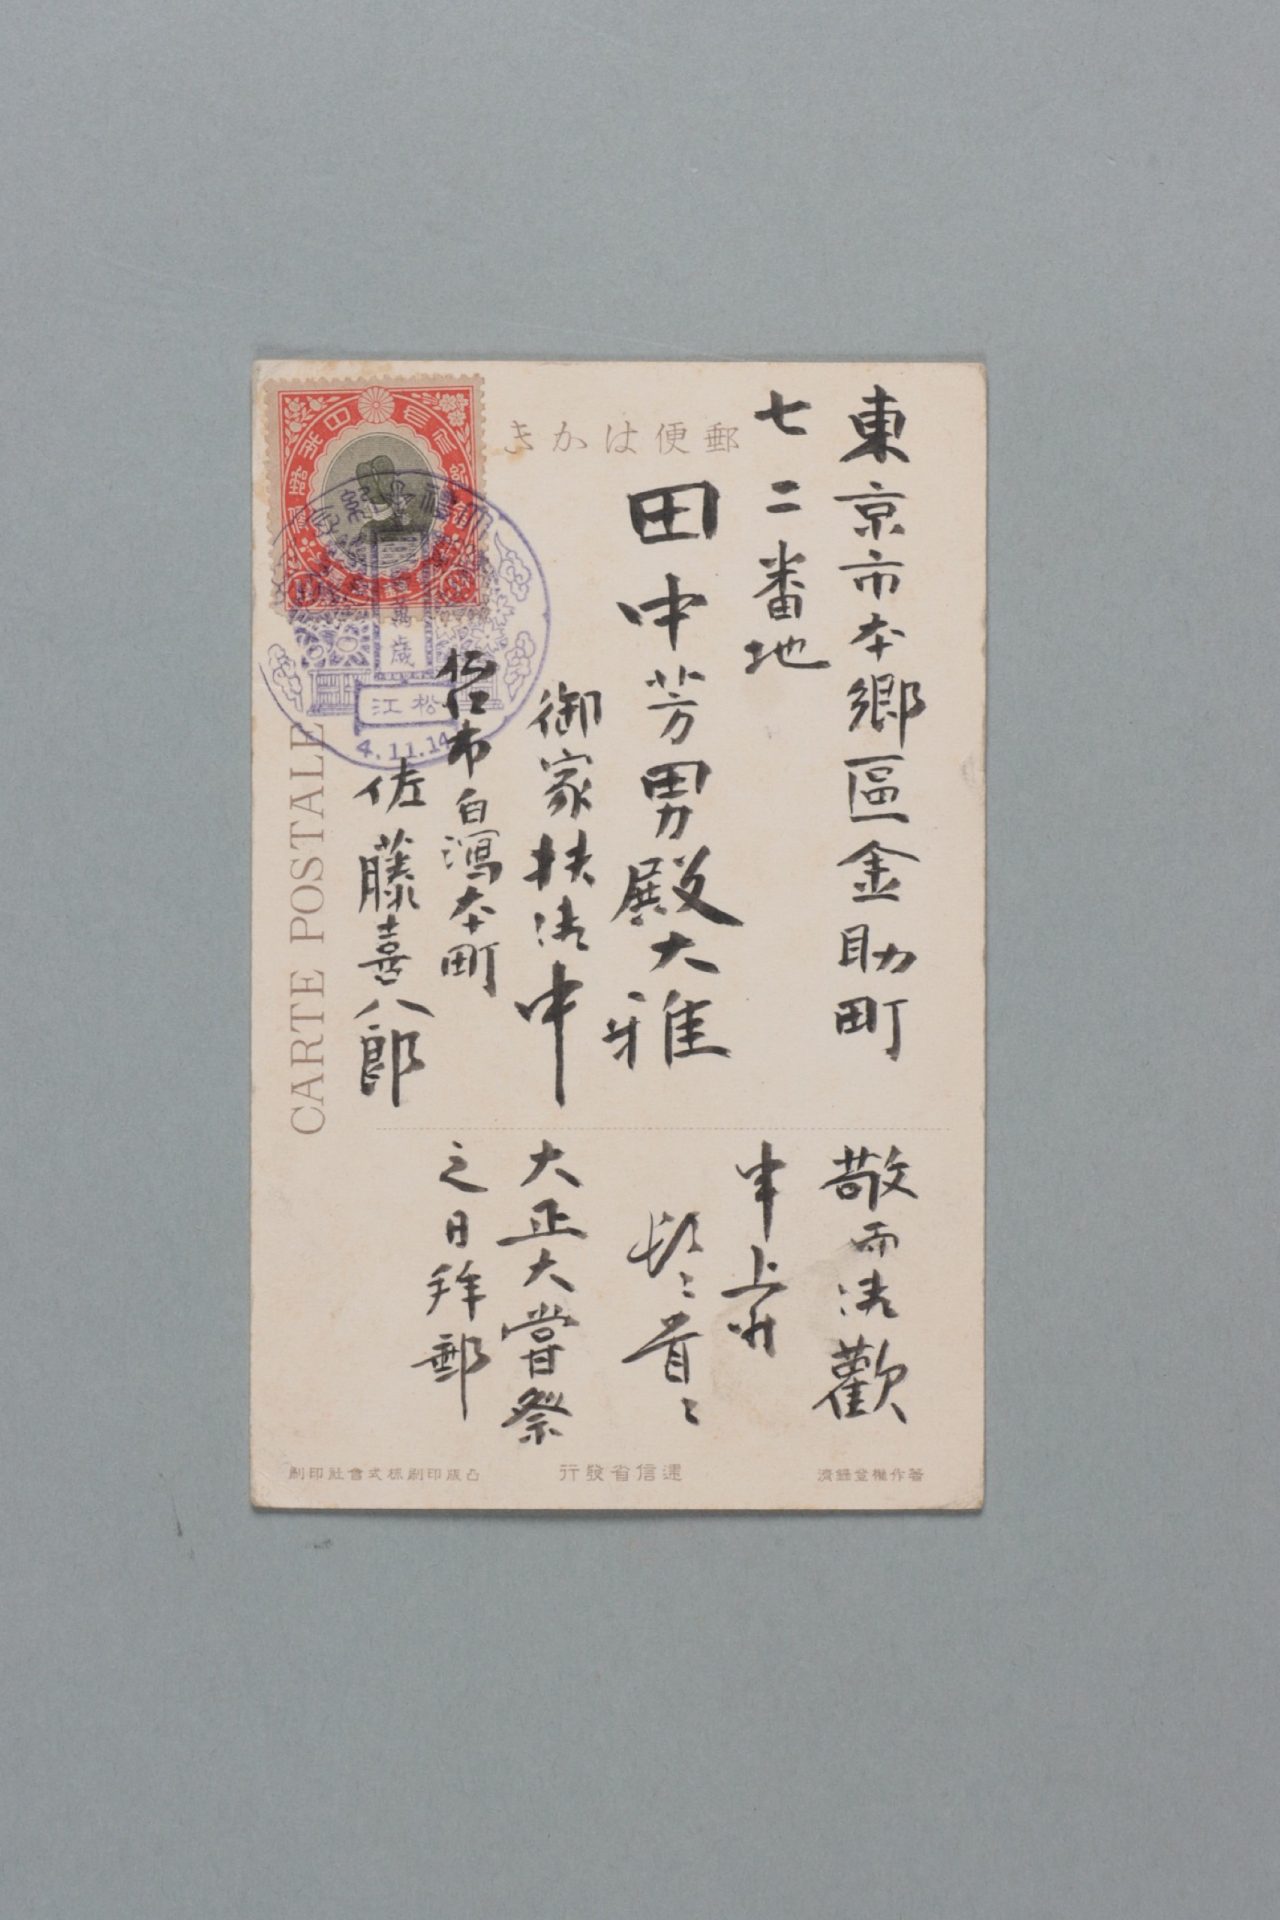 郵便はかき
東京市本郷區金助町
七二番地
田中芳男殿大雅
御家扶御中
松江市白潟本町
佐藤喜八郎
敬而清歓
申上候
頓々首々
大正大嘗祭
之日拜郵
萬歳
松江
4.11.14
CARTE POSTALE
著作權登錄濟
遞信省發行
凸版印刷株式會社印刷